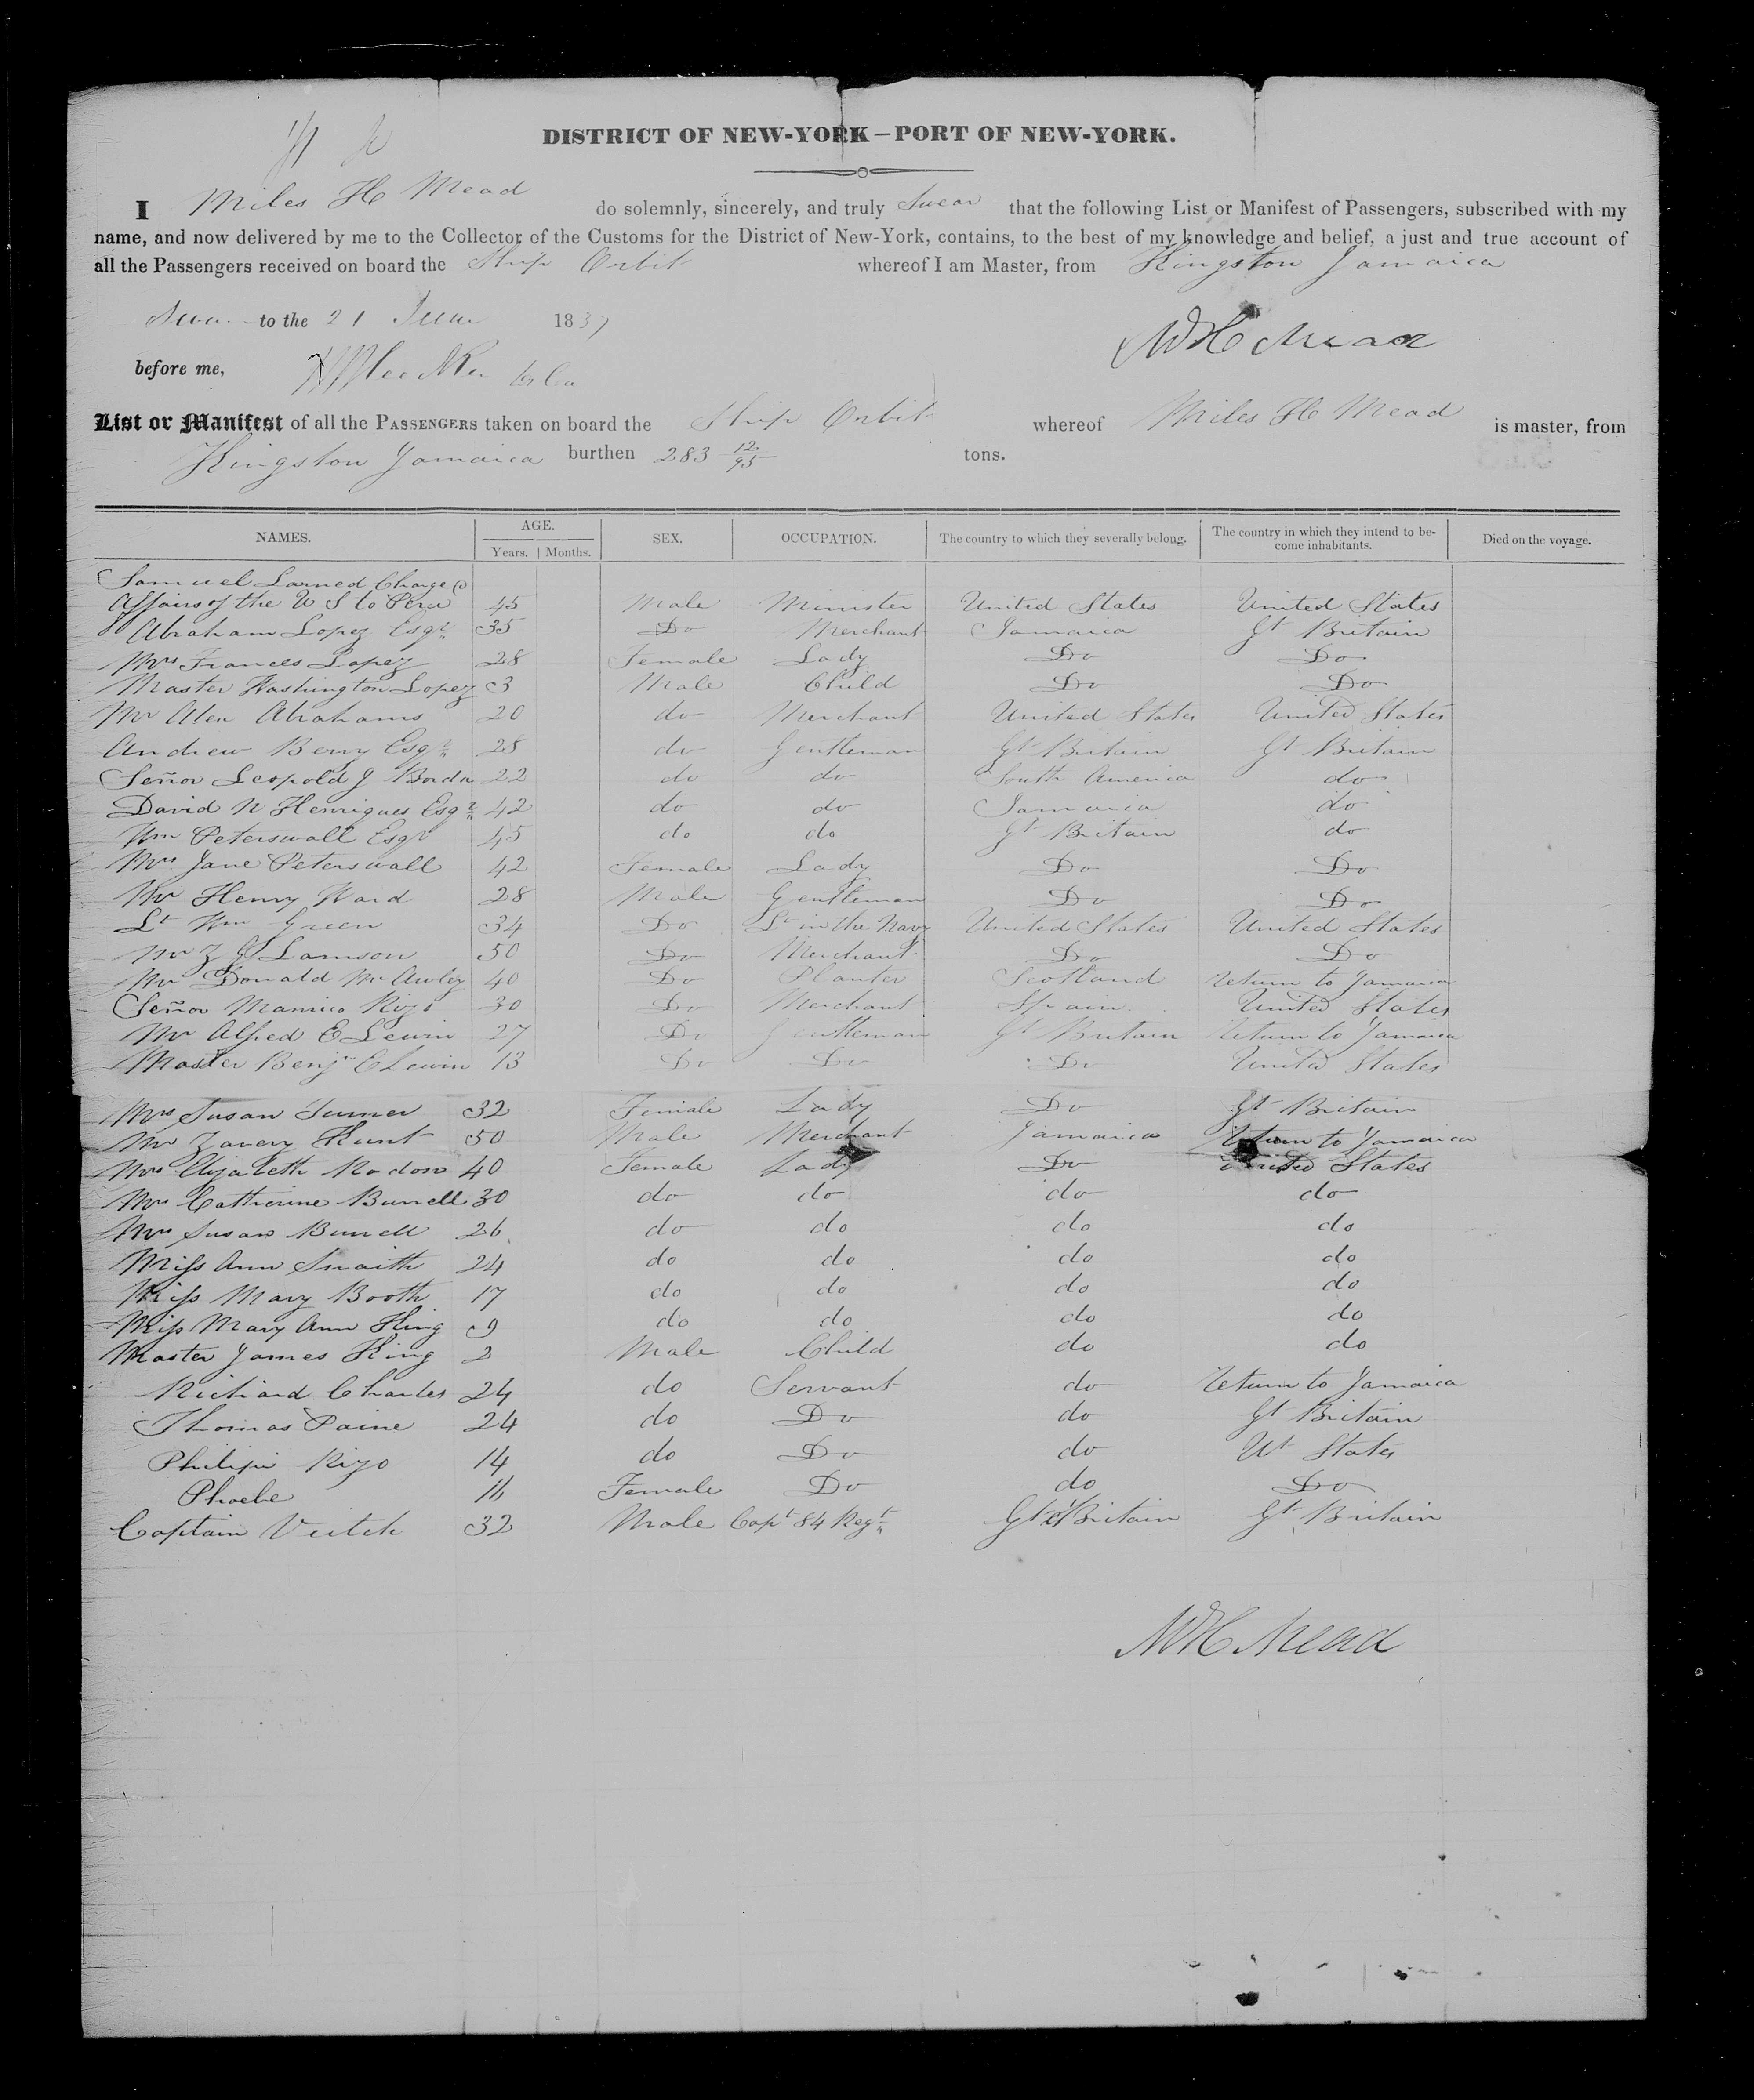 DISTRICT OF NEW-YORK—PORT OF NEW-YORK.
I Miles H Mead do solemnly, sincerely, and truly Swear that the following List or Manifest of Passengers, subscribed with my
name, and now delivered by me to the Collector of the Customs for the District of New-York, contains, to the best of my knowledge and belief, a just and true account of
all the Passengers received on board the Ship Orbit whereof I am Master, from Kingston Jamaica
to the 21 June 1837
M H Mead
before me,
List or Manifest of all the PASSENGERS taken on board the Ship Orbit whereof Miles H Mead is master, from
Kingston Jamaica burthen 283 12/95 tons.
NAMES. AGE. Years. Months. SEX. OCCUPATION. The country to which they severally belong. The country in which they intend to become inhabitants. Died on the voyage.
Samuel Larned Charge d
Affairs of the U S to Peru 45 Male Minister United States United States
Abraham Lopez Esqr 35 Do Merchant Jamaica Gt Britain
Mrs Frances Lopez 28 Female Lady Do Do
Master Washington Lopez 3 Male Child Do Do
Mr Alen Abrahams 20 do Merchant United States United States
Andrew Berry Esqr 28 do Gentleman Gt Britain Gt Britain
Señor Leopold J 22 do do South America do
David N Henriques Esqr 42 do do Jamaica do
Wm Peterswall Esqr 45 do do Gt Britain do
Mrs Jane Peterswall 42 Female Lady Do Do
Mr Henry Ward 28 Male Gentleman Do Do
Lt Wm Green 34 Do Lt in the Navy United States United States
Mr Z Lamson 50 Do Merchant Do Do
Mr Donald McAuley 40 Do Planter Scotland return to Jamaica
Señor 30 Do Merchant Spain United States
Mr Alfred E Lewin 27 Do Gentleman Gt Britain return to Jamaica
Master Benjn E Lewin 13 Do Do Do United States
Mrs Susan Turner 32 Female Lady Do Gt Britain
Mr Zavery Hunt 50 Male Merchant Jamaica return to Jamaica
Mrs Elizabeth Rodon 40 Female Lady Do United States
Mrs Catherine Burrell 30 do do do do
Mrs Susan Burrell 26 do do do do
Miss Ann Snaith 24 do do do do
Miss Mary Booth 17 do do do do
Miss Mary Ann King 9 do do do do
Master James King 2 Male Child do do
Richard Charles 24 do Servant do return to Jamaica
Thomas Paine 24 do Do do Gt Britain
Philipi Rizo 14 do Do do Ut States
Phoebe 16 Female Do do Do
Captain Veitch 32 Male Capt 84 Regt Gt Britain Gt Britain
M H Mead